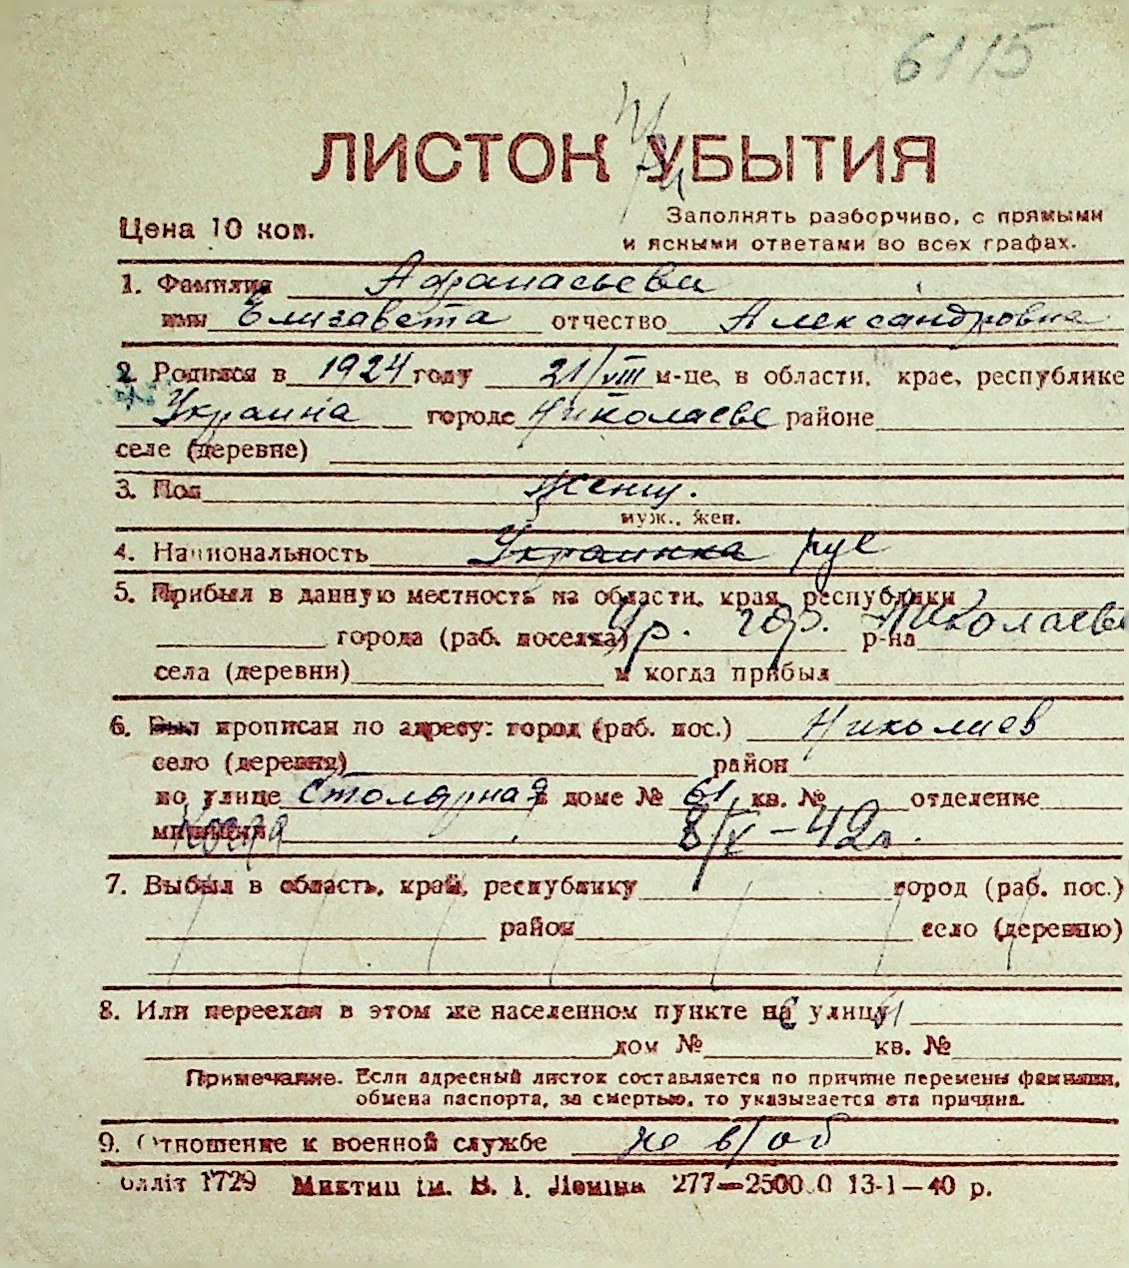 6115
ЛИСТОК УБЫТИЯ
Цена 10 коп.
Заполнять разборчиво, с прямыми
и ясными ответами во всех графах.
1. Фамилия Афанасьева
имя Елизавета отчество Александровна
2. Родился в 1924 году 21/VIII м-це, в области, крае, республике
Украина городе Николаеве районе
селе (деревне)
3. Пол Женщ.
муж., жен.
4. Национальность Украинка рус
5. Прибыл в данную местность из области, края, республики
города (раб. поселка) гор. р-на Николаев
села (деревни) и когда прибыл
6. Был прописан по адресу: город (раб. пос.) Николаев
село (деревня) район
по улице Столярная в доме № 61, кв. № отделение
милиции Когда 8/V-42г.
7. Выбыл в область, край, республику город (раб. пос.)
район село (деревню)
8. Или переехал в этом же населенном пункте на улицу
дом № кв. №
Примечание. Если адресный листок составляется по причине перемены фамилии,
обмена паспорта, за смертью, то указывается эта причина.
9. Отношение к военной службе не в/об
олліт 1729 Миктип ім. В. І. Леніна 277—2500.0 13-1—40 р.